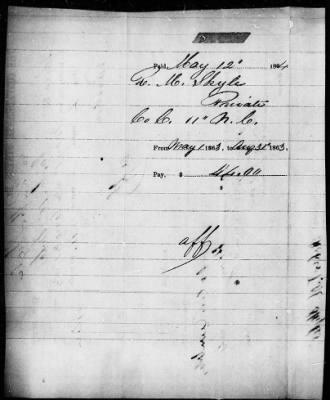 Paid, May 12" 1864
M. Skyle
Private
Co C. 11" N. C.
From May 1 1863, to Aug 31" 1863.
Pay, $ 44.00